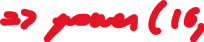 => power (16,